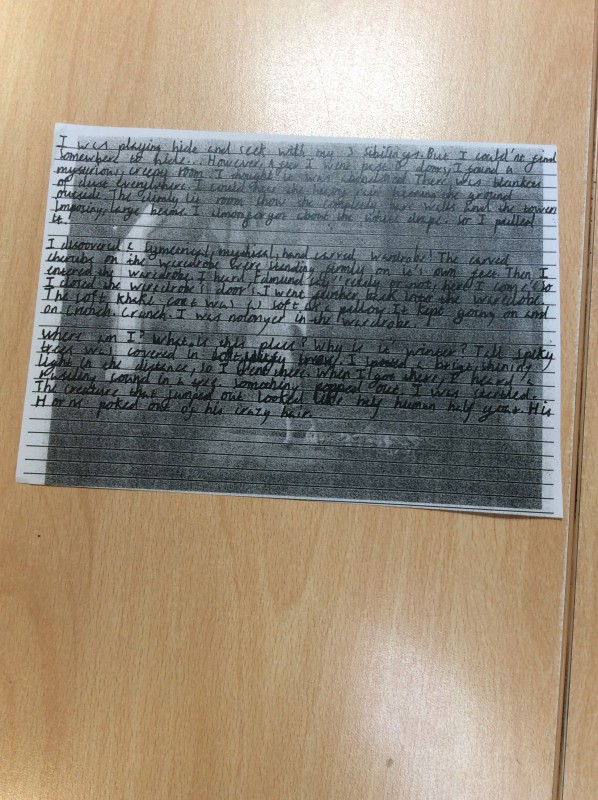 I was playing hide and seek with my 3 sibilings. But I could'nt find
somewhere to hide... However, After I went past 3 doors, I found a
mysterious, creepy room. I thought it was a There was blankets
of dust everywhere. I could hear the heavy rain the ground
outside. The dimly lit room show the completly bare walls and the towen
Imposing, large beams. I almon forgot about the white drape. So I pulled
it!
I discovered a mythical, hand carved, wardrobe! The carved
cherubs on the weredrobe were standing firmly on it's own feet. Then I
entered the waredrobe. I heard Edmund say "ready or not, here I come" So
I closed the weredrobe's door's. I went further back into the waredrobe.
The soft khaki coat was as soft as a pillow. It kept going on and
on. Crunch. Crunch. I was nolonger in the wardrobe.
Where am I? What is this place? Why is it winter? Tall spiky
trees was covered in I spotted a bright, shining
light in the distance, so I went there. When I got there, I heard a
sound in a popped out. I was startled.
The creature that jumped out looked like half human half goat. His
Horns poked out of his crazy hair.